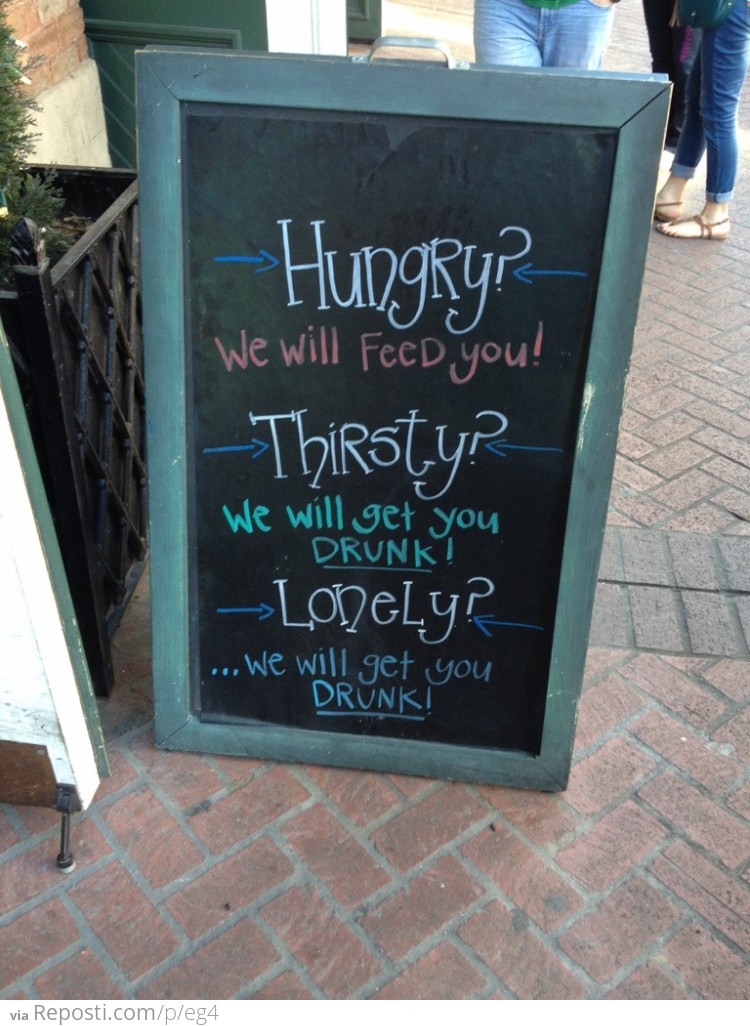 Hungry?
We will feed you!
Thirsty?
We will get you
DRUNK!
Lonely?
...we will get you
DRUNK!
via Reposti.com/p/eg4